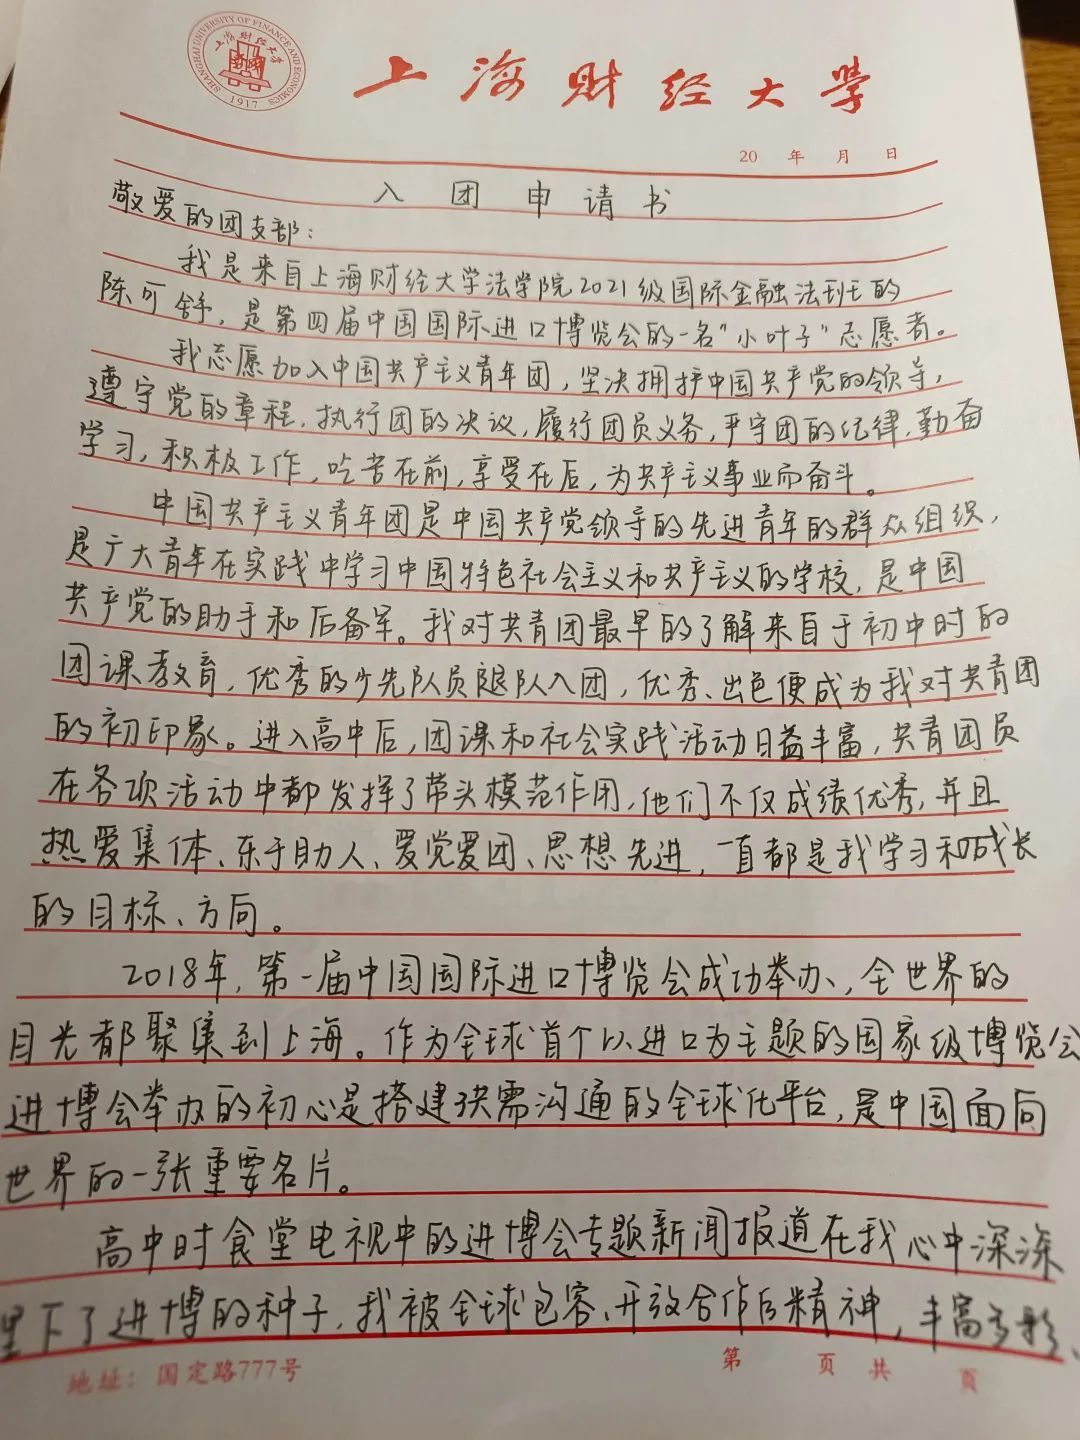 SHANGHAI UNIVERSITY OF FINANCE AND ECONOMICS
上海财经大学
1917
上海财经大学
20 年 月 日
入团申请书
敬爱的团支部：
我是来自上海财经大学法学院2021级国际金融法班的
陈可舒，是第四届中国国际进口博览会的一名“小叶子”志愿者。
我志愿加入中国共产主义青年团，坚决拥护中国共产党的领导，
遵守党的章程，执行团的决议，履行团员义务，严守团的纪律，勤奋
学习，积极工作，吃苦在前，享受在后，为共产主义事业而奋斗。
中国共产主义青年团是中国共产党领导的先进青年的群众组织，
是广大青年在实践中学习中国特色社会主义和共产主义的学校，是中国
共产党的助手和后备军。我对共青团最早的了解来自于初中时的
团课教育，优秀的少先队员退队入团，优秀、出色便成为我对共青团
的初印象。进入高中后，团课和社会实践活动日益丰富，共青团员
在各项活动中都发挥了带头模范作用，他们不仅成绩优秀，并且
热爱集体、乐于助人、爱党爱团、思想先进，一直都是我学习和成长
的目标、方向。
2018年，第一届中国国际进口博览会成功举办，全世界的
目光都聚集到上海。作为全球首个以进口为主题的国家级博览会
进博会举办的初心是搭建供需沟通的全球化平台，是中国面向
世界的一张重要名片。
高中时食堂电视中的进博会专题新闻报道在我心中深深
埋下了进博的种子，我被全球包容、开放合作的精神，丰富多彩、
地址：国定路777号 第 页 共 页